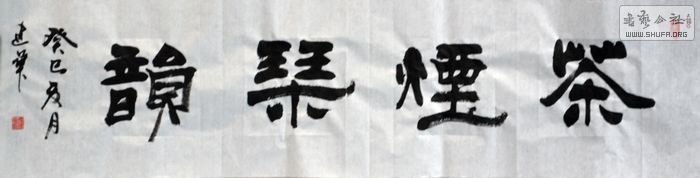 茶煙琴韻
癸巳夏月
建
书艺公社
WWW.SHUFA.ORG